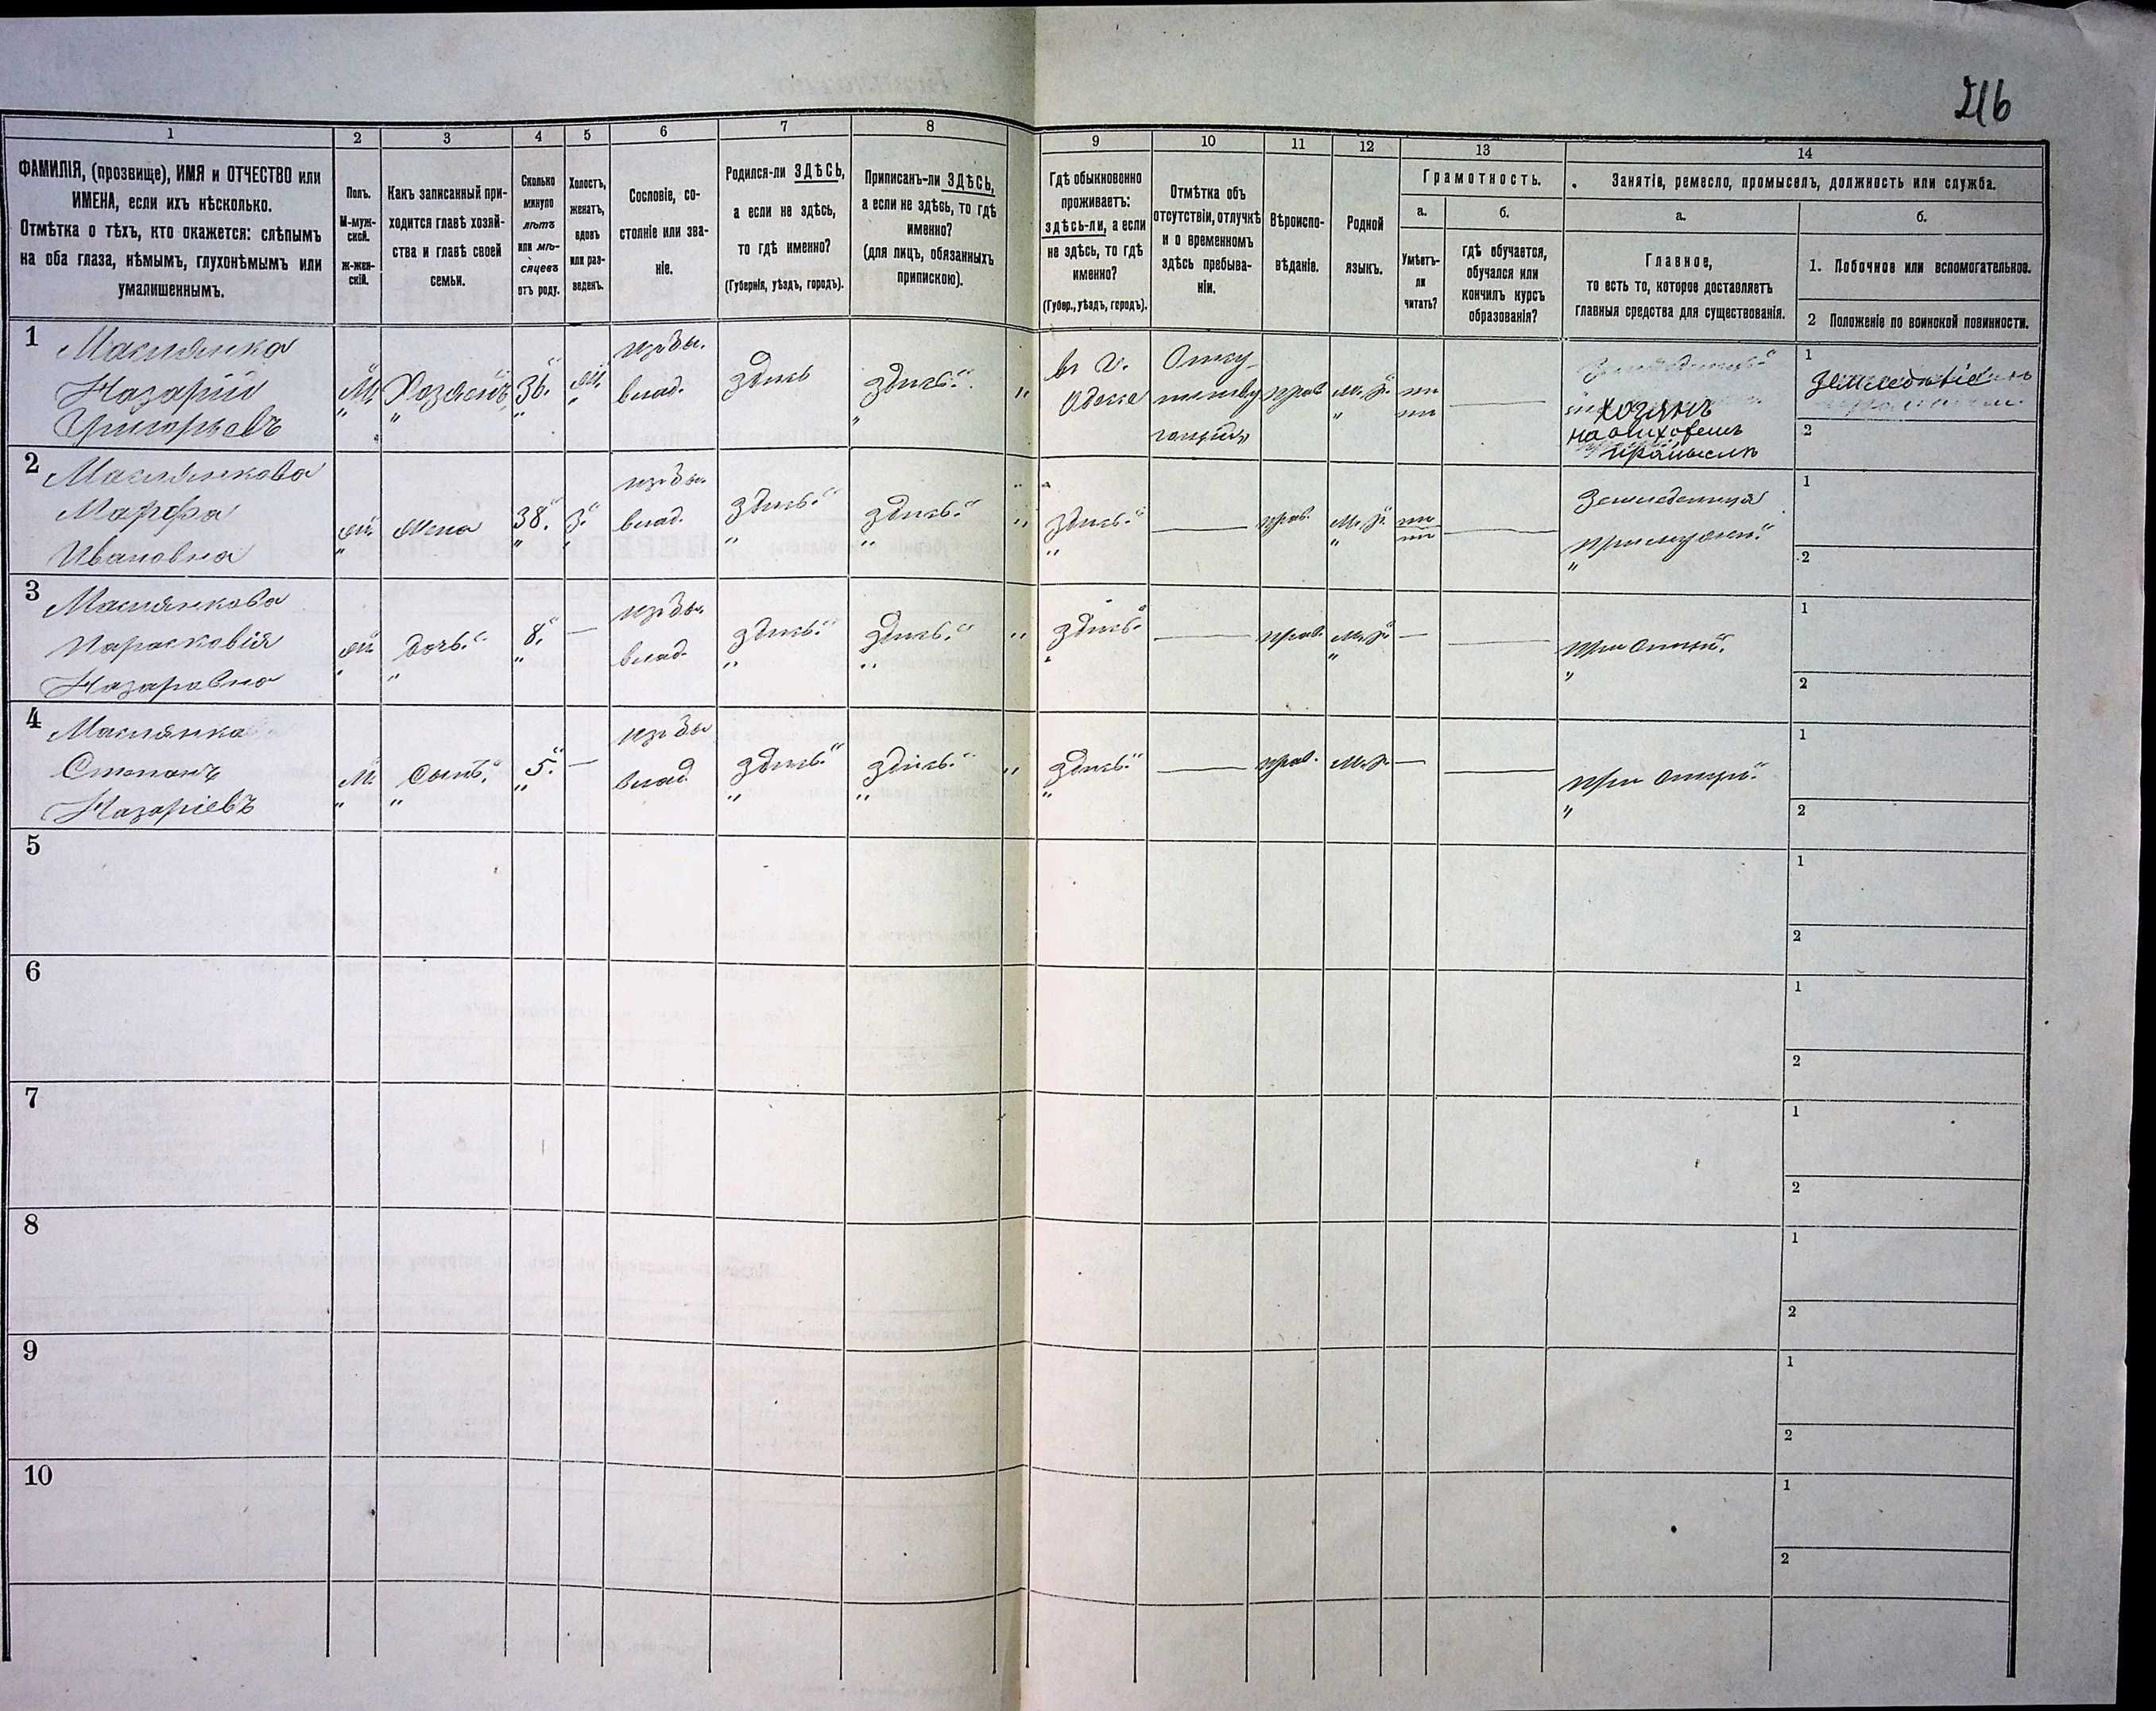 216
1
2
3
4
5
6
7
8
9
10
11
12
13
14
ФАМИЛІЯ, (прозвище), ИМЯ и ОТЧЕСТВО или
ИМЕНА, если ихъ нѣсколько.
Отмѣтка о тѣхъ, кто окажется: слѣпымъ
на оба глаза, нѣмымъ, глухонѣмымъ или
умалишеннымъ.
Полъ.
М-муж-
ской.
ж-жен-
скій.
Какъ записанный при-
ходится главѣ хозяй-
ства и главѣ своей
семьи.
Сколько
минуло
лѣтъ
или мѣ-
сяцевъ
отъ роду.
Холостъ,
женатъ,
вдовъ
или раз-
веденъ.
Сословіе, со-
стояніе или зва-
ніе.
Родился-ли ЗДѢСЬ,
а если не здѣсь,
то гдѣ именно?
(Губернія, уѣздъ, городъ).
Приписанъ-ли ЗДѢСЬ,
а если не здѣсь, то гдѣ
именно?
(для лицъ, обязанныхъ
припискою).
Гдѣ обыкновенно
проживаетъ:
здѣсь-ли, а если
не здѣсь, то гдѣ
именно?
(Губер., уѣздъ, городъ).
Отмѣтка объ
отсутствіи, отлучкѣ
и о временномъ
здѣсь пребыва-
ніи.
Вѣроиспо-
вѣданіе.
Родной
языкъ.
Грамотность.
а.
Умѣетъ-
ли
читать?
б.
гдѣ обучается,
обучался или
кончилъ курсъ
образованія?
Занятіе, ремесло, промыселъ, должность или служба.
а.
Главное,
то есть то, которое доставляетъ
главныя средства для существованія.
б.
1. Побочное или вспомогательное.
2 Положеніе по воинской повинности.
1
Маслянка
Назарій
Григорьевъ
М.
Хозяинъ
36.
Ж.
изъ бы.
влад.
здѣсь
здѣсь.
въ г.
Одесса
Отсу-
прав.
М. р.
хозяинъ
1
Земледѣліе
2
2
Маслянкова
Марфа
Ивановна
Ж.
Жена
38.
З.
изъ бы.
влад.
здѣсь.
здѣсь.
здѣсь.
прав.
М. р.
Земледелица
при мужѣ.
1
2
3
Маслянкова
Парасковія
Назаровна
Ж.
Дочь.
8.
изъ бы.
влад.
здѣсь.
здѣсь.
здѣсь.
прав.
М. р.
при отцѣ.
1
2
4
Маслянка
Степанъ
Назаріевъ
М.
Сынъ.
5.
изъ бы
влад.
здѣсь.
здѣсь.
здѣсь.
прав.
М. р.
при отцѣ.
1
2
5
1
2
6
1
2
7
1
2
8
1
2
9
1
2
10
1
2